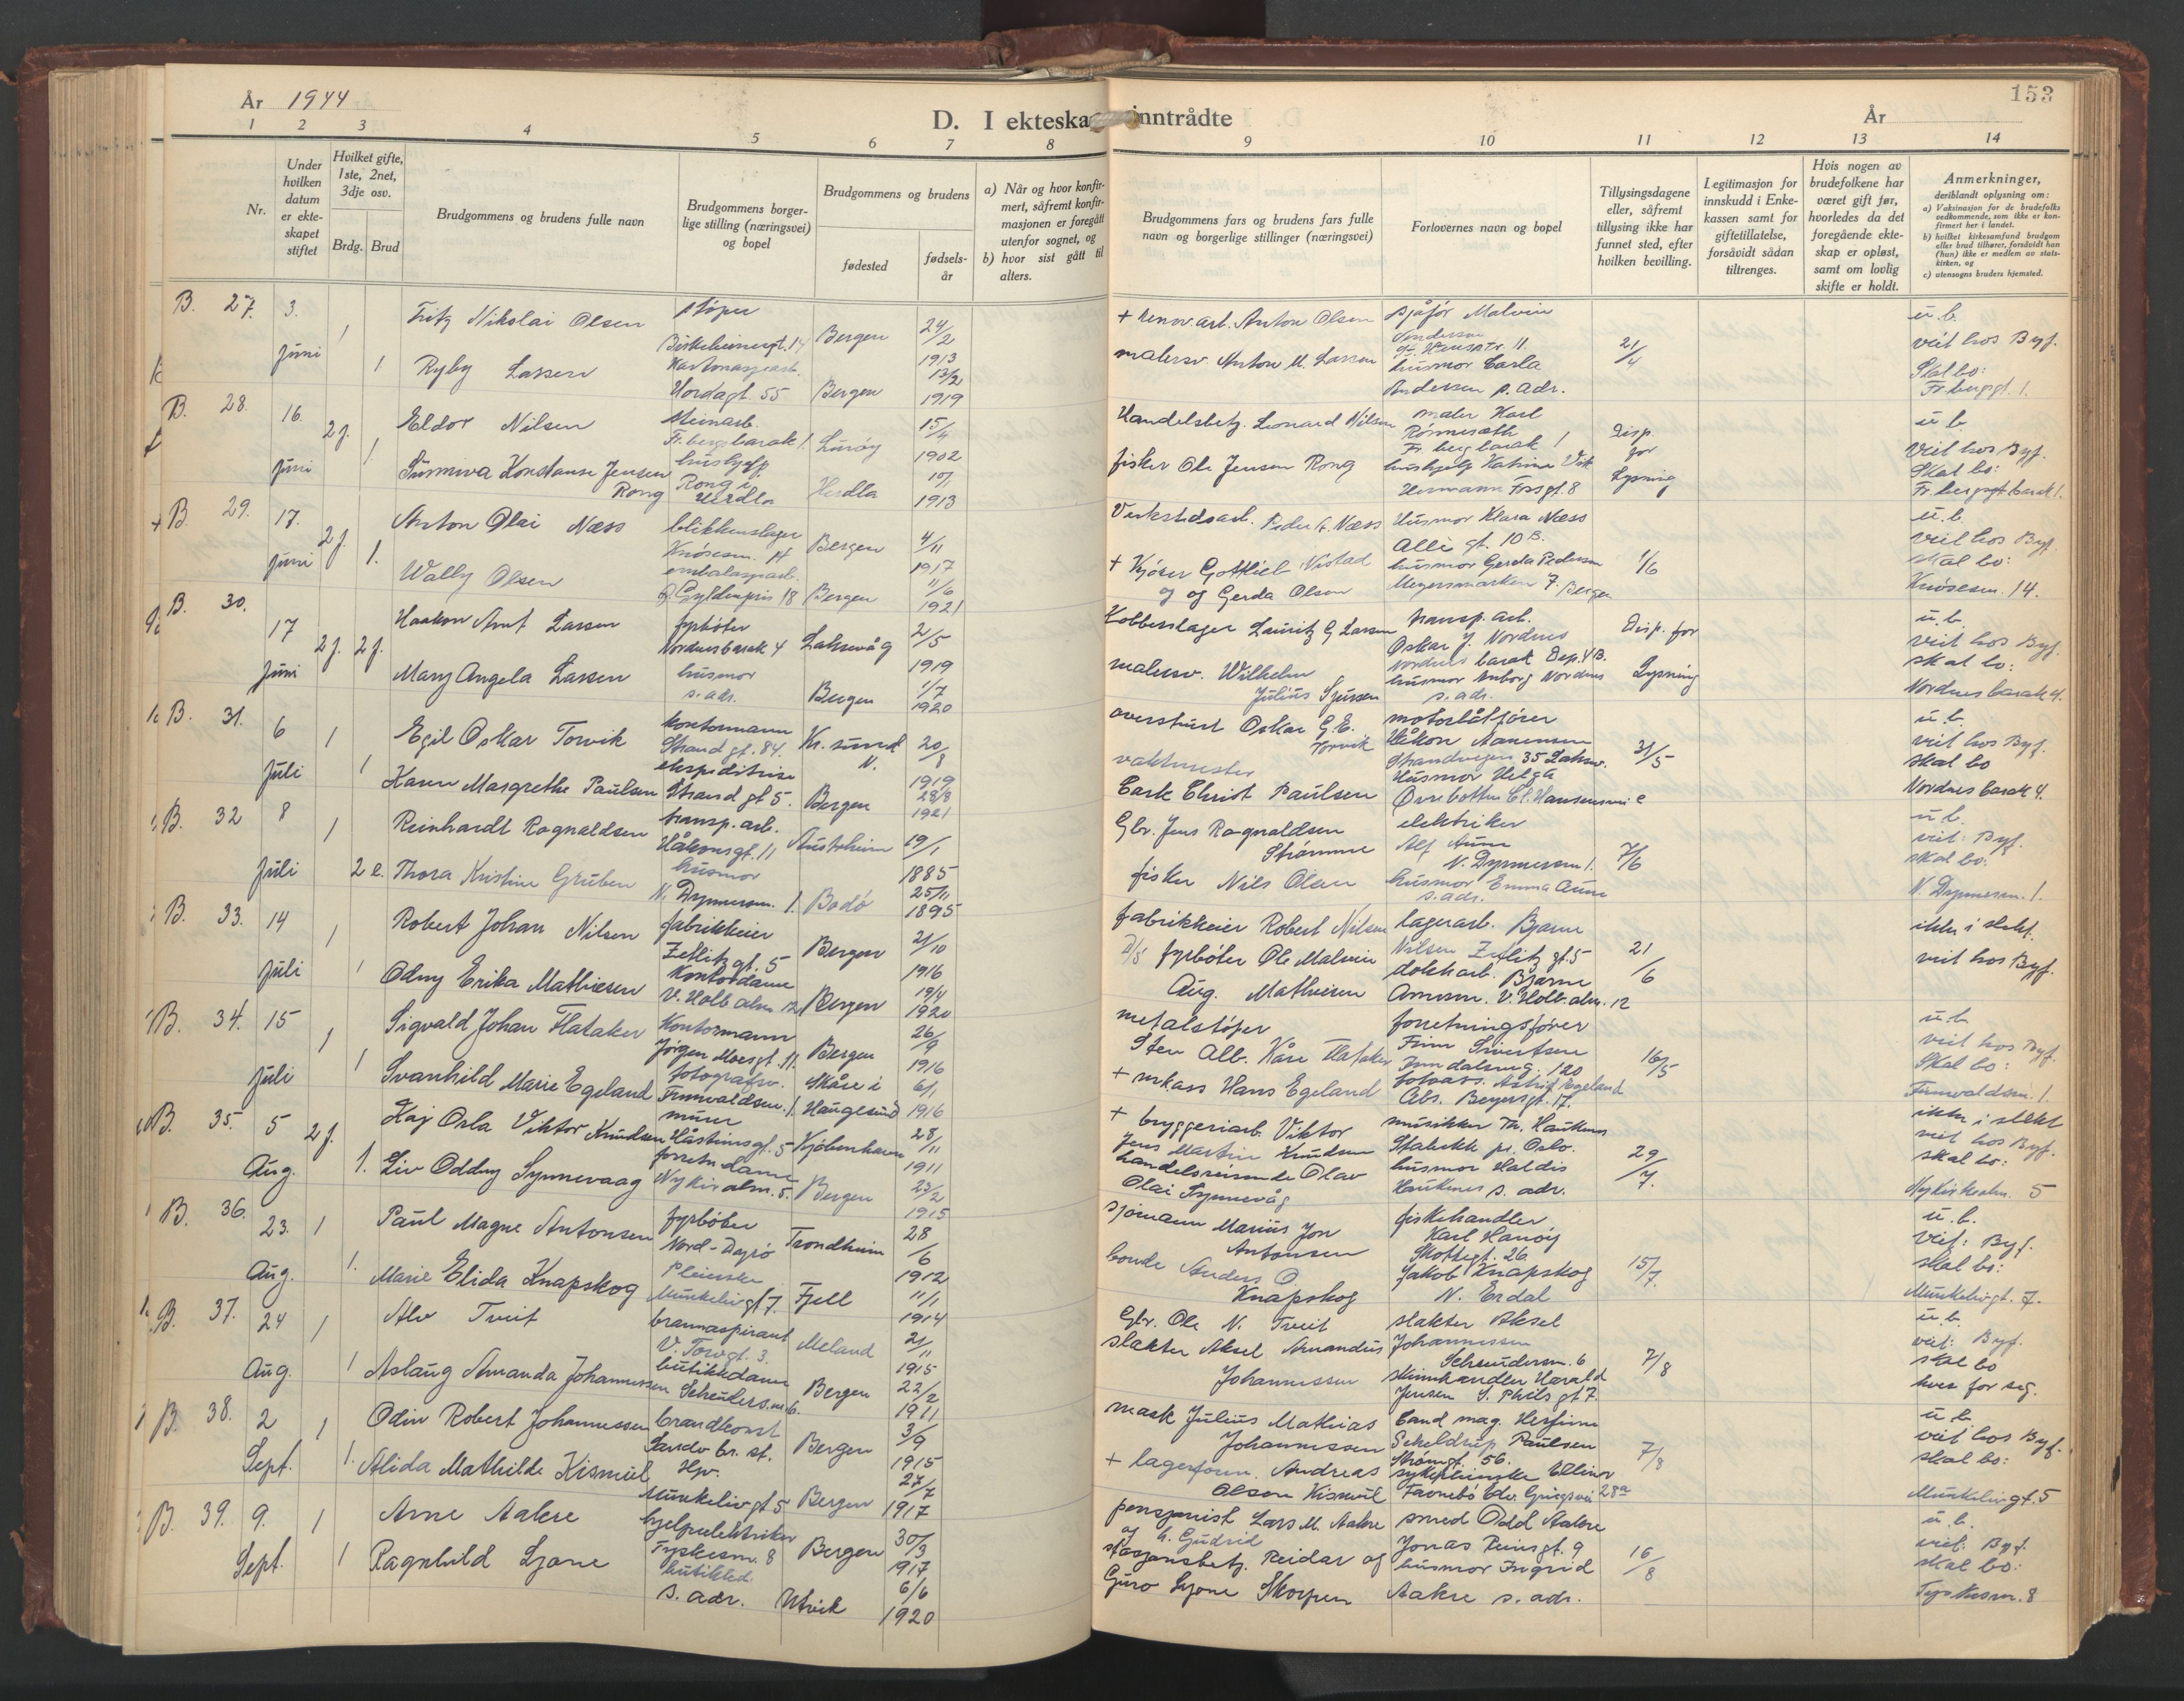 År 1944
D. I ekteska inntrådte
År
153
1 2 3 4 5 6 7 8 9 10 11 12 13 14
Nr.
Under hvilken datum er ekteskapet stiftet
Hvilket gifte, 1ste, 2net, 3dje osv.
Brdg. Brud
Brudgommens og brudens fulle navn
Brudgommens borgerlige stilling (næringsvei) og bopel
Brudgommens og brudens
fødested
fødselsår
a) Når og hvor konfirmert, såfremt konfirmasjonen er foregått utenfor sognet, og
b) hvor sist gått til alters.
Brudgommens fars og brudens fars fulle navn og borgerlige stillinger (næringsvei)
Forlovernes navn og bopel
Tillysingsdagene eller, såfremt tillysing ikke har funnet sted, efter hvilken bevilling.
Legitimasjon for innskudd i Enkekassen samt for giftetillatelse, forsåvidt sådan tiltrenges.
Hvis nogen av brudefolkene har været gift før, hvorledes da det foregående ekteskap er opløst, samt om lovlig skifte er holdt.
Anmerkninger,
deriblandt oplysning om:
a) Vaksinasjon for de brudefolks vedkommende, som ikke er konfirmert her i landet.
b) hvilket kirkesamfund brudgom eller brud tilhører, forsåvidt han (hun) ikke er medlem av statskirken, og
c) utensogns bruders hjemsted.
B. 27. 3. Juni 1 1
Fritz Nikolai Olsen støper Bergen 24/2 1913
Ryby Lassen Hordagt. 55 Bergen 13/2 1919
+ renov.arb. Anton Olsen sjåfør Malvin
malersv. Anton M. Larsen husmor Carla Andersen s. adr.
21/4
u.b. veit hos Byf. Skal bo: Fr.bergsgt. 1.
B. 28. 16. Juni 2 f. 1.
Eldor Nilsen steinarb. Fr.bergsbarak 1. Lurøy 15/4 1902
Sunniva Konstanse Jensen Rong hushj. Rong i Herdla Herdla 10/1 1913
Handelsbetj. Leonard Nilsen maler Karl Rønneseth Fr. berg barak 1
fisker Ole Jensen Rong hushjelp Katrine Vik Hermann Fossgt. 8
Disp. for Lysning
u.b. Veit hos Byf. Skal bo: Fr.bergsgt barak 1.
B. 29. 17. Juni 2 f. 1.
Anton Olai Næss blikkenslager Knøsesm. 14 Bergen 4/11 1917
Wally Olsen emballasjearb. Gyldenpris 18 Bergen 11/6 1921
Verkstedsarb. Peder A. Næss Husmor Klara Næss Alle gt. 10 B.
+ Kjører Gottlieb Nistad og Gerda Olsen husmor Gerda Pedersen Meyersmarken 7. Bergen
1/6
u.b. veit hos Byf. skal bo: Knøsesm. 14.
B. 30. 17 Juni 2 f. 2 f.
Haakon Arnt Larsen fyrbøter Nordnesbarak 4 Laksevåg 2/5 1919
Mary Angela Larsen husmor s. adr. Bergen 1/7 1920
Kobberslager Lauritz G Larsen transp. arb. Oskar J. Nordnes Nordnes barak Dep. 4 B.
malersv. Wilhelm Julius Sjursen husmor Inborg Nordnes s. adr.
Disp. for Lysning
u.b. veit hos Byf. skal bo: Nordnes barak 4.
B. 31. 6 Juli 1 1
Egil Oskar Torvik kontormann Strandgt. 84. Kr. sund N. 20/8 1919
Karen Margrethe Paulsen ekspeditrise Strandgt 5. Bergen 28/8 1921
overstuert Oskar G.E. Torvik motorbåtfører Håkon Aanensen Strandvegen 35 Laksev.
vaktmester Carl Christ Paulsen Husmor Helga Øvrebotten Cl. Hansensvei
31/5
u.b. veit hos Byf. skal bo Nordnes barak 4.
B. 32 8 Juli 1 2 e.
Reinhardt Ragnaldsen transp. arb. Håkonsgt. 11 Austrheim 19/1 1885
Thora Kristine Gruben husmor N. Dyrmersm. 1. Bodø 25/11 1895
Gbr. Jens Ragnaldsen Strømme elektriker Alf Aune N. Dyrmersm 1.
fisker Nils Olsen husmor Emma Aune s. adr.
7/6
u.b. veit: Byf. skal bo: N. Dyrmersm. 1.
B. 33. 14 Juli 1 1
Robert Johan Nilsen fabrikkeier Zetlitzgt. 5 Bergen 21/10 1916
Odny Erika Mathiesen kontordame V. Holb alm. 12 Bergen 19/4 1920
fabrikkeier Robert Nilsen lagerarb. Bjarne Nilsen Zetlitz gt. 5
D/S fyrbøter Ole Malvin Aug. Mathiesen dokkarb. Bjarne Arnesen. V. Holb. alm. 12
21/6
ikke i slekt. veit hos Byf.
B. 34. 15 Juli 1 1
Sigvald Johan Flataker Kontormann Jørgen Moesgt. 11. Bergen 26/9 1916
Svanhild Marie Egeland fotografsv. Finnvaldsm. 1. Skåre i Haugesund 6/1 1916
metalstøper Sten Alb. Kåre Flataker forretningsfører Finn Sivertsen Inndalsveg. 120
+ inkass Hans Egeland fotoass. Astrid Egeland Abs. Beyersgt. 17.
16/5
u.b. veit hos Byf. Skal bo: Finnvaldsm. 1.
B. 35. 5 Aug. 2 f. 1.
Kaj Orla Viktor Knudsen murer Håsteinsgt. 5 Kjøbenhavn 28/11 1911
Liv Oddny Synnevaag forretn. dame Nykirkealm. 5. Bergen 23/2 1915
+ bryggeriarb. Viktor Jens Martin Knudsen musikker Th. Haukenes Stabekk pr. Oslo.
handelsreisende Olav Olai Synnevåg husmor Haldis Haukenes s. adr.
29/7.
ikke i slekt veit hos Byf. skal bo: Nykirkealm. 5
B. 36. 23. Aug. 1 1.
Paul Magne Antonsen fyrbøter Nord-Dyrø Trondheim 28/6 1912
Marie Elida Knapskog Pleierske Munkelivgt 7. Fjell 11/1 1914
sjømann Marius Jon Antonsen fiskehandler Karl Hanøy Skottegt. 26
bonde Anders O. Knapskog Jakob Knapskog N. Erdal
15/7.
u.b. veit: Byf. skal bo: Munkelivgt. 7.
B. 37. 24 Aug. 1 1
Alv Tveit brannaspirant V. Torvgt. 3. Meland 21/11 1915
Aslaug Amanda Johannessen butikkdame Schreudersm. 6. Bergen 22/2 1911
Gbr. Ole N. Tveit slakter Aksel Johannessen Schreudersm. 6
slakter Aksel Amandus Johannessen skinnhandler Harald Jensen S. Phils gt 7.
7/8
u.b. veit: Byf. skal bo hver for seg.
B. 38. 2 Sept. 1 1.
Odin Robert Johannessen brandkonst. Sandv. br. st. Bergen 3/9 1915
Alida Mathilde Kismul Hjv. Munkelivgt 5 Bergen 27/7 1917
mask Julius Mathias Johannessen Cand mag. Herfinn Scheldrup Paulsen Strømgt. 56.
+ lagerform. Andreas Olson Kismul sykepleierske Ellinor Favnebø Edv. Griegsvei 28a
7/8
u.b. veit hos Byf. skal bo: Munkelivgt. 5
B. 39. 9. Sept. 1 1
Arne Aakre hjelpeelektriker Tyskesm. 8 Bergen 30/3 1917
Ragnhild Ljone butikkd. s. adr. Utvik 6/6 1920
pensjonist Lars M. Aakre og h. Gudrid smed Odd Aakre Jonas Reinsgt. 9
stasjonsbetj. Reidar og Guro Ljone Skorpen husmor Ingrid Aakre s. adr.
16/8
u.b. veit: Byf. skal bo: Tyskesm. 8